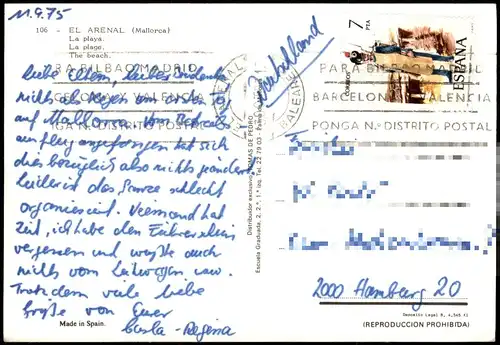 11.9.75
106 - EL ARENAL (Mallorca)
La playa.
La plage.
The beach.
Deutschland
7
PTA
CORREOS
ESPAÑA
PARA BILBAO MADRID
BARCELONA VALENCIA
PONGA N.º DISTRITO POSTAL
BALEARES
Liebe Eltern, lieber
nichts als Regen vom ersten Tag
auf Mallorca. Vom
ausflug angefangen hat sich
diesbezüglich also nichts geändert.
Leider ist das Ganze schlecht
organisiert. Niemand hat
Zeit, ich habe den Führerschein
vergessen und wußte auch
nichts vom Leihwagen usw.
Trotzdem viele liebe
Grüße von Eurer
Carla-Regina
Made in Spain.
Distribuidor exclusivo: TOMAS DE PEDRO
Escuela Graduada, 2, 2.º, 1.ª izq. Tel. 22 79 03 - Palma
2000 Hamburg 20
Depósito Legal B. 4.545
(REPRODUCCION PROHIBIDA)